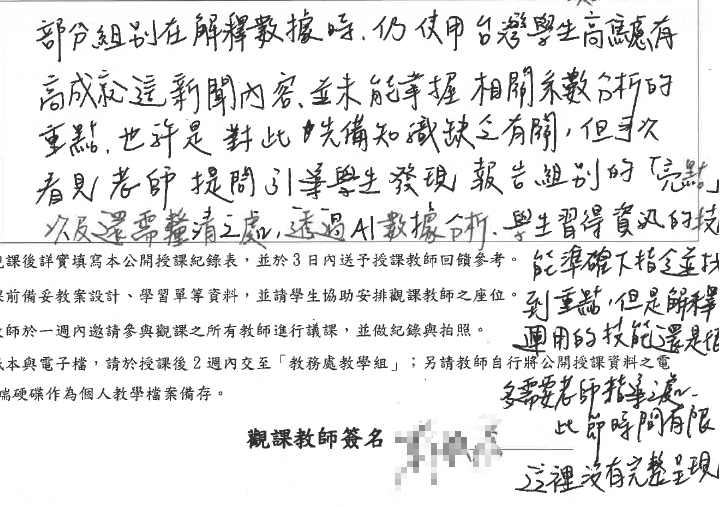 部分組別在解釋數據時,仍使用台灣學生高焦慮有
高成就這新聞內容,並未能掌握相關系數分析的
重點,也許是對此先備知識缺乏有關,但多次
看見老師提問引導學生發現報告組別的「亮點」
以及還需釐清之處,透過AI數據分析,學生習得資訊的技
能準確下指令並找
到重點,但是解釋
運用的技能還是很
多需要老師指導之處
此節時間有限
這裡沒有完整呈現
課後詳實填寫本公開授課紀錄表,並於3日內送予授課教師回饋參考。
課前備妥教案設計、學習單等資料,並請學生協助安排觀課教師之座位。
教師於一週內邀請參與觀課之所有教師進行議課,並做紀錄與拍照。
紙本與電子檔,請於授課後2週內交至「教務處教學組」;另請教師自行將公開授課資料之電
端硬碟作為個人教學檔案備存。
觀課教師簽名